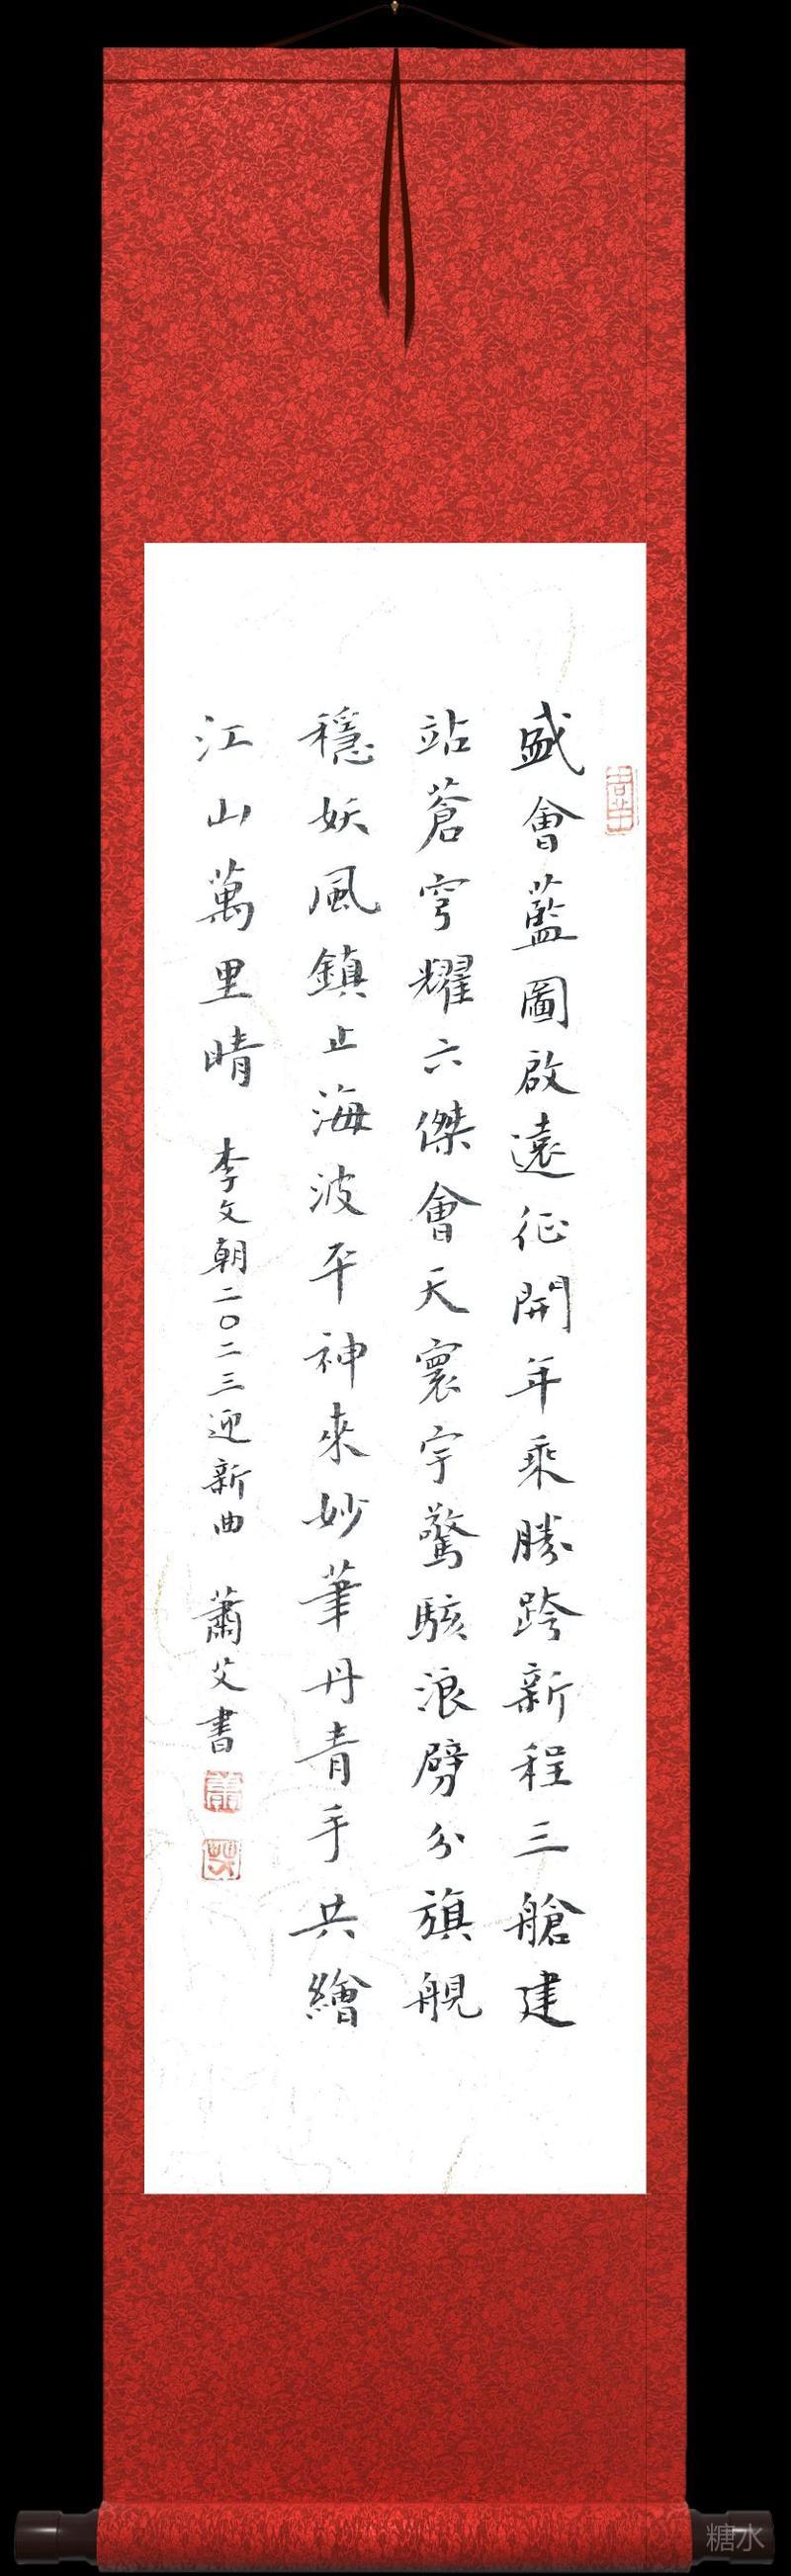 盛會藍圖啟遠征開年乘勝跨新程三艙建
站蒼穹耀六傑會天寰宇驚駭浪劈分旗舰
穩妖風鎮止海波平神來妙筆丹青手共繪
江山萬里晴 李文朝二〇二三迎新曲 蕭艾書
蕭
艾
糖水